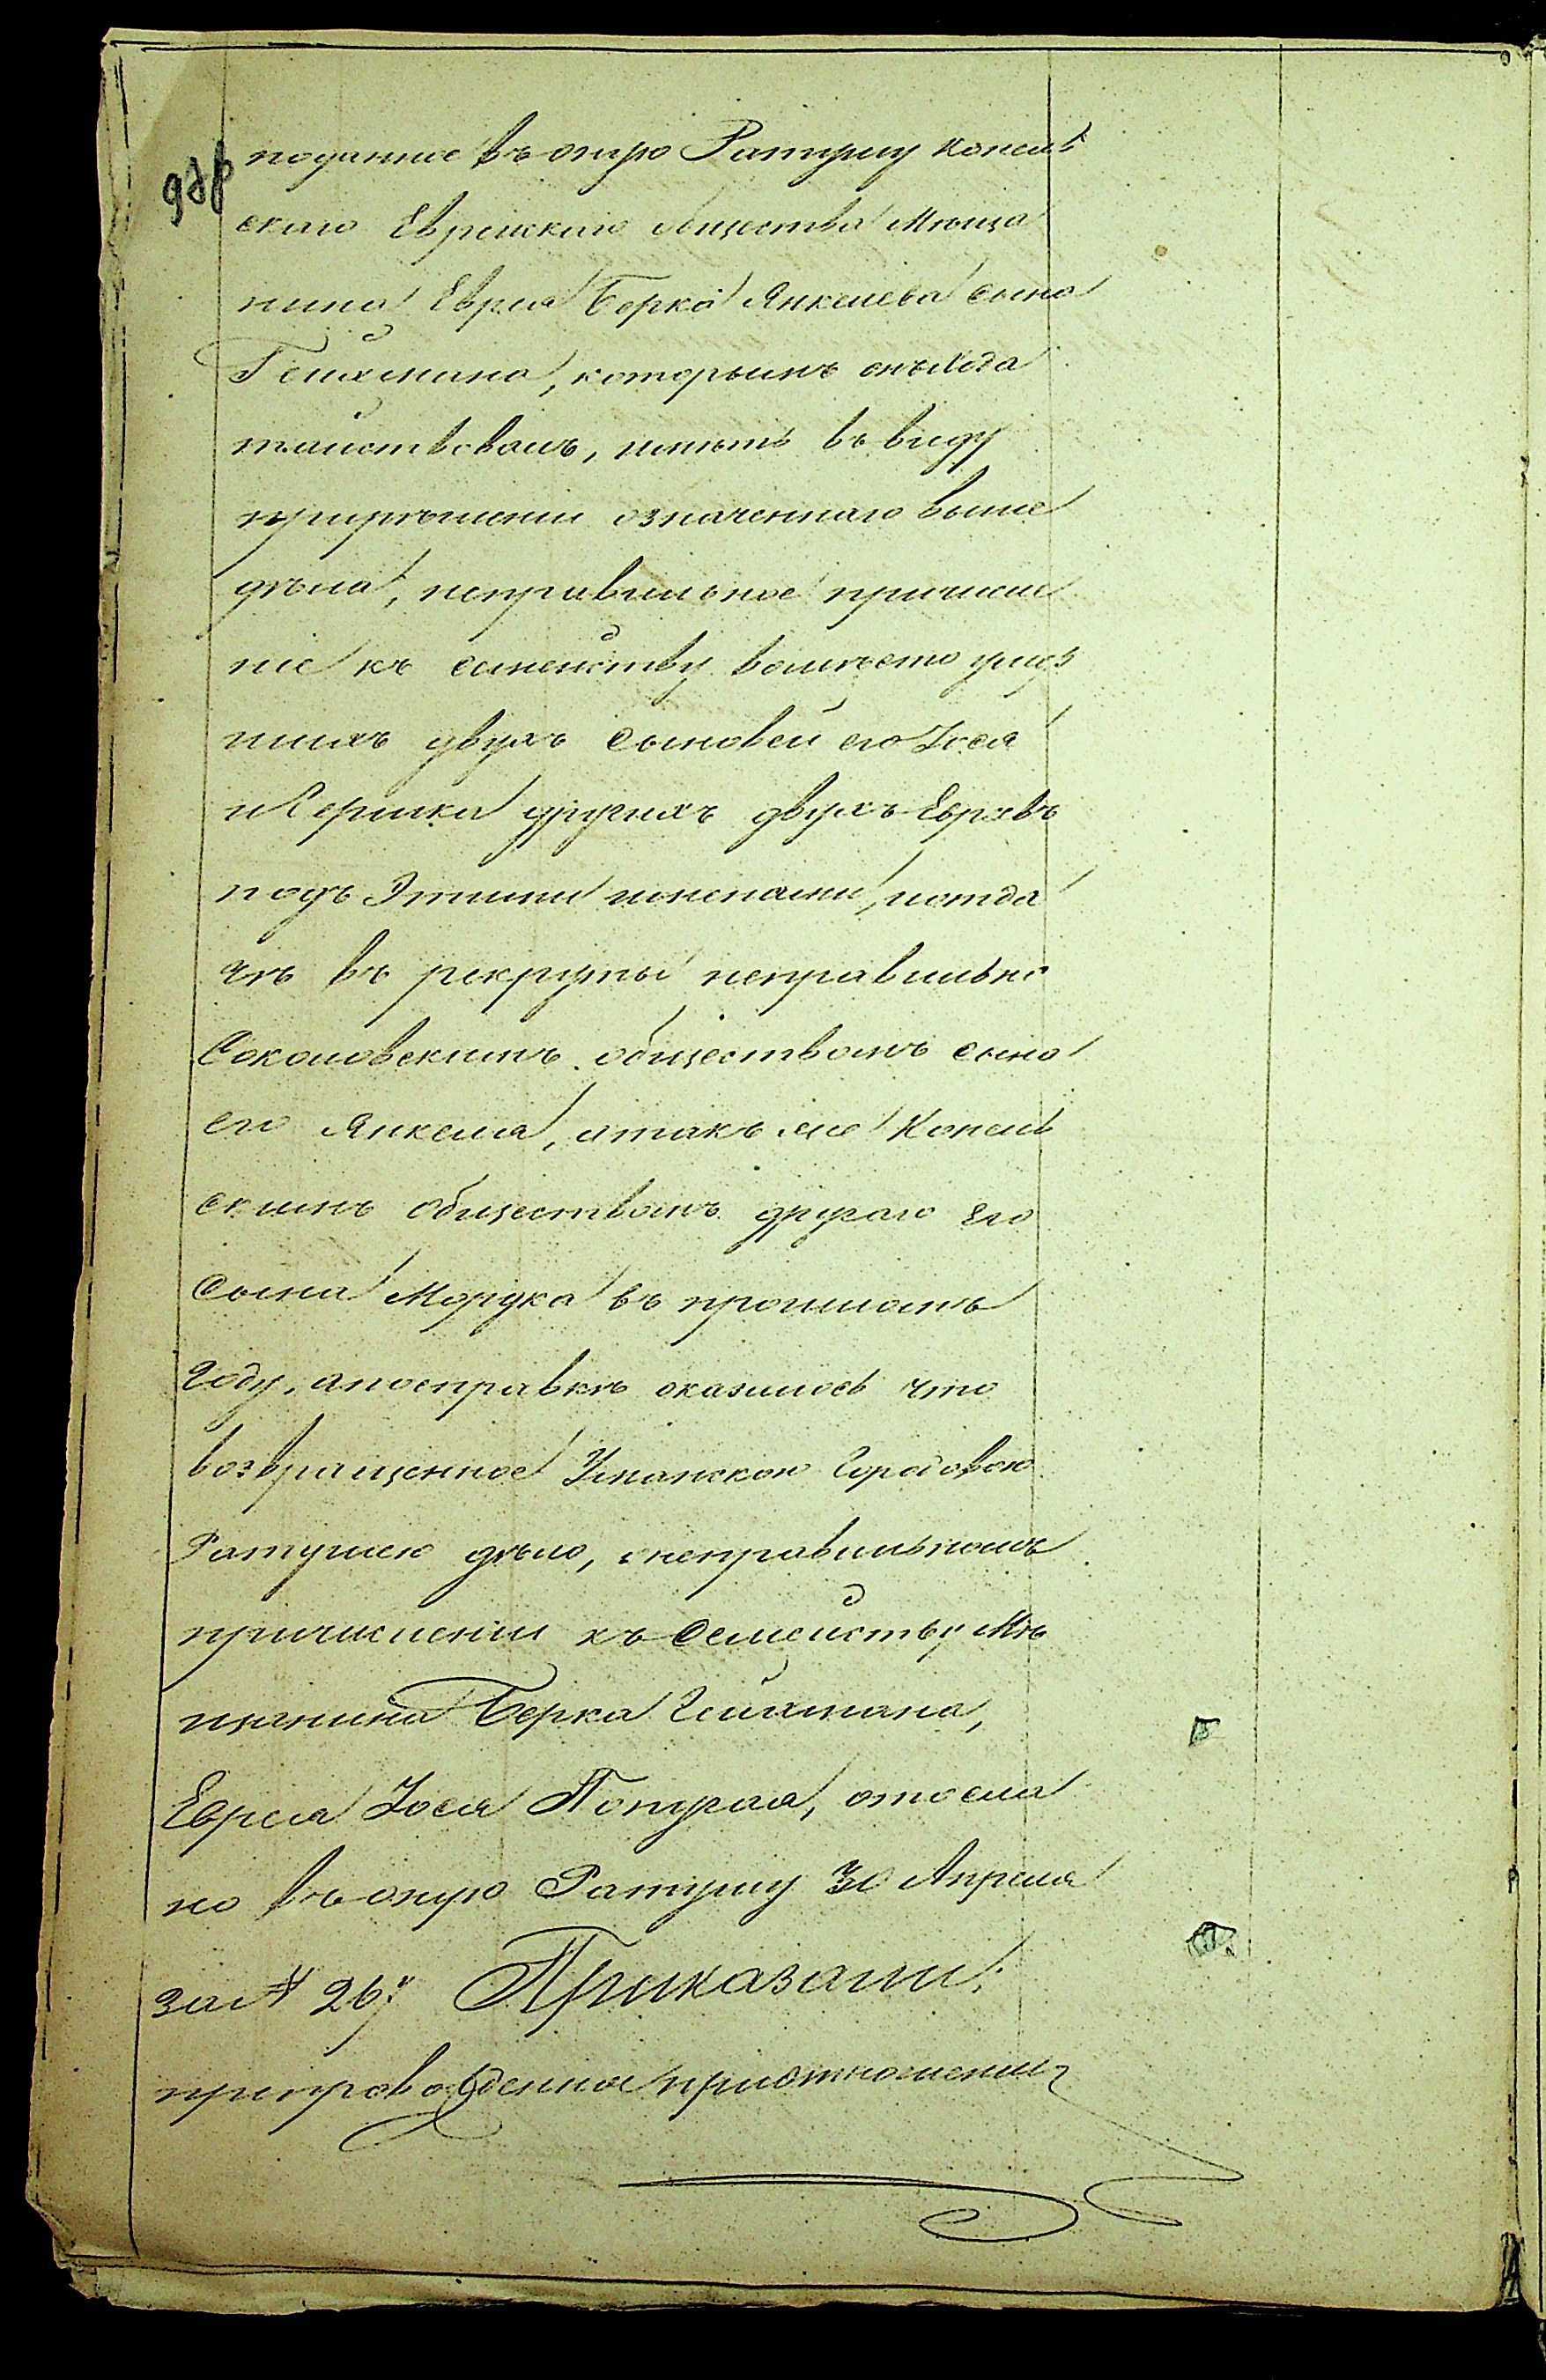 поданное въ оную Ратушу Конель
ского Еврейскаго Общества Мѣща
нина Еврея Берка Янкелева сына
Гейхмана, которымъ онъ Хода
тайствовалъ, имѣть въ виду
при рѣшеніи означеннаго выше
дѣла, неправильное причисле
ніе къ семейству вомѣсто умер
шихъ двухъ сыновей его Іося
и Сермка другихъ двухъ Евреевъ
подъ Этими именами, и отда
чѣ въ рекруты неправильно
Соколовскимъ обществомъ сына
его Янкеля, а такъ же Конель
скимъ обществомъ другаго Его
Сына Мордка въ прошломъ
Году, а по справкѣ оказалось что
возвращенное Уманскою Городовою
Ратушею дѣло, о неправильномъ
причисленіи къ Семейству Мѣ
щанина Берка Гейхмана,
Еврея Іося Попурая, отосла
но въ оную Ратушу 30 Апреля
за № 267 Приказали:
препровожденное при отношеніи